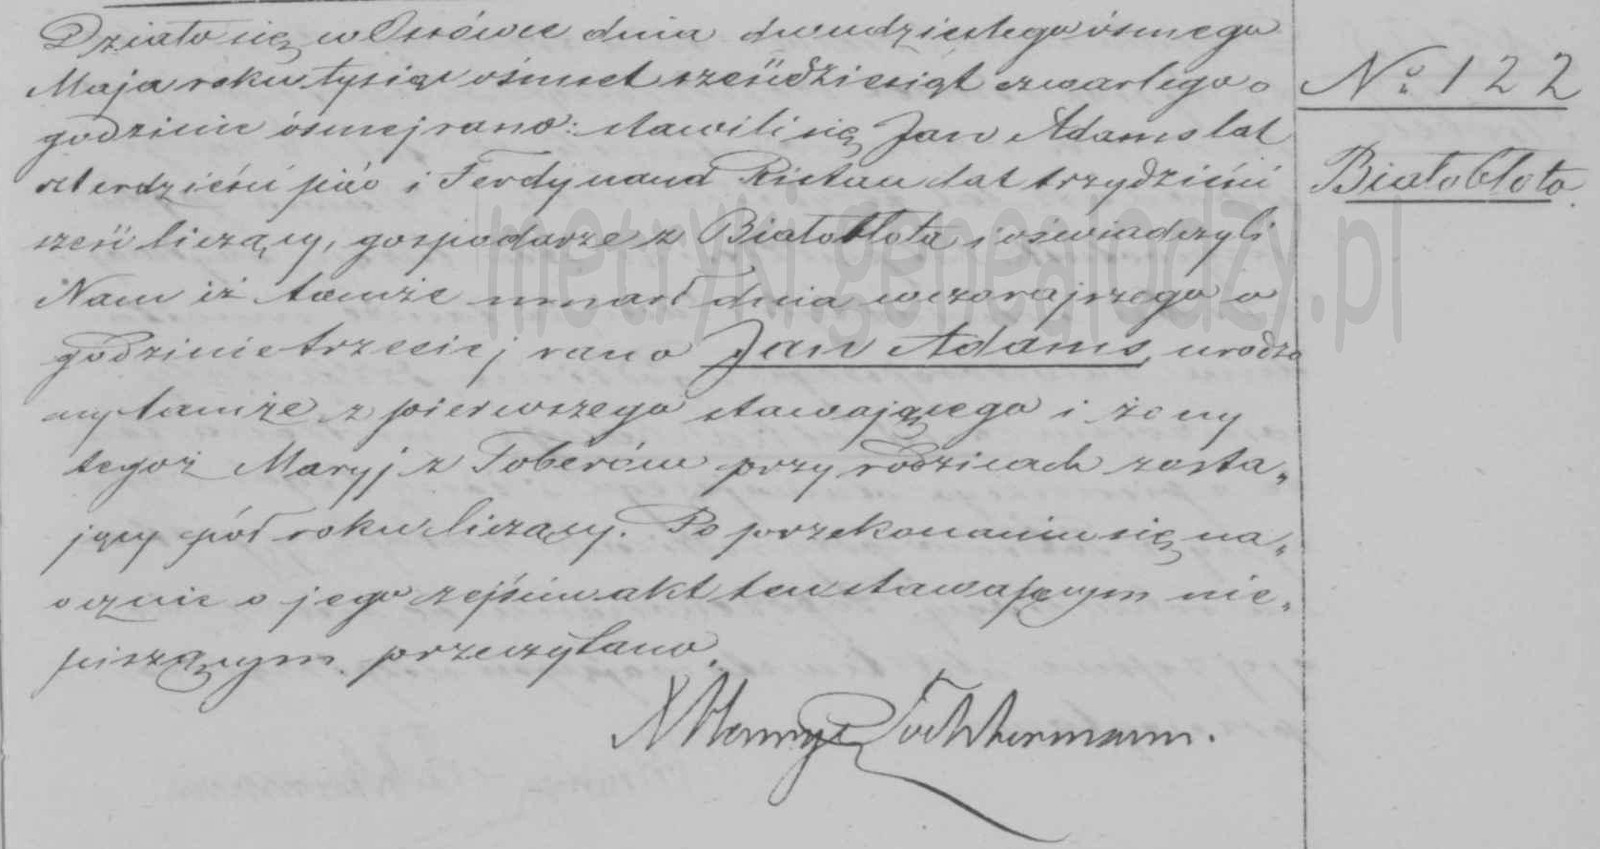 Działo się w Ossówce dnia dwudziestego ósmego
Maja roku tysiąc ośmset sześćdziesiąt czwartego o
godzinie ósmej rano: stawili się Jan Adams lat
czterdzieści pięć i Ferdynand lat trzydzieści
sześć liczący, gospodarze z Białobłota i oświadczyli
Nam iż tamże umarł dnia wczorajszego o
godzinie trzeciej rano Jan Adams, urodzo
ny tamże z pierwszego stawającego i żony
tegoż Maryj z Toberów przy rodzicach zosta„
jący pół roku liczący. Po przekonaniu się na„
ocznie o jego zejściu akt ten stawającym nie„
piszącym przeczytano.
X Henryk
No 122
Białobłoto.
metryki.genealodzy.pl